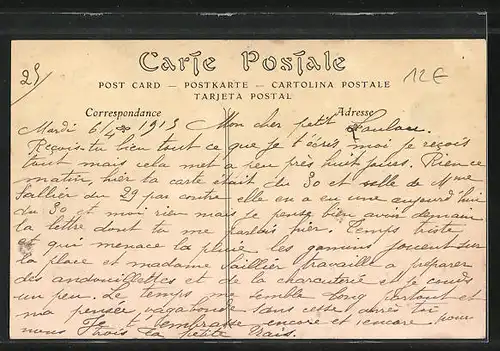 25
Carte Postale
12€
POST CARD — POSTKARTE — CARTOLINA POSTALE
TARJETA POSTAL
Correspondance
Adresse
Mardi 6/4 1915 Mon cher petit Loulou.
Reçois-tu bien tout ce que je t'écris, moi je reçois
tout mais cela met a peu près huit jours. Rien ce
matin, hier ta carte était du 30 et celle de Mme
Saillier du 29 par contre elle en a eu une aujourd'hui
du 30 et moi rien mais je pense bien avoir demain
la lettre dont tu me parlais hier. Temps triste
et qui menace la pluie les gamins jouent sur
la place et madame Saillier travaille a préparer
des andouillettes et de la charcuterie et je couds
un peu. Le temps me semble long partout et
ma pensée vagabonde sans cesse après toi
Je t'embrasse encore et encore pour
nous trois ta petite